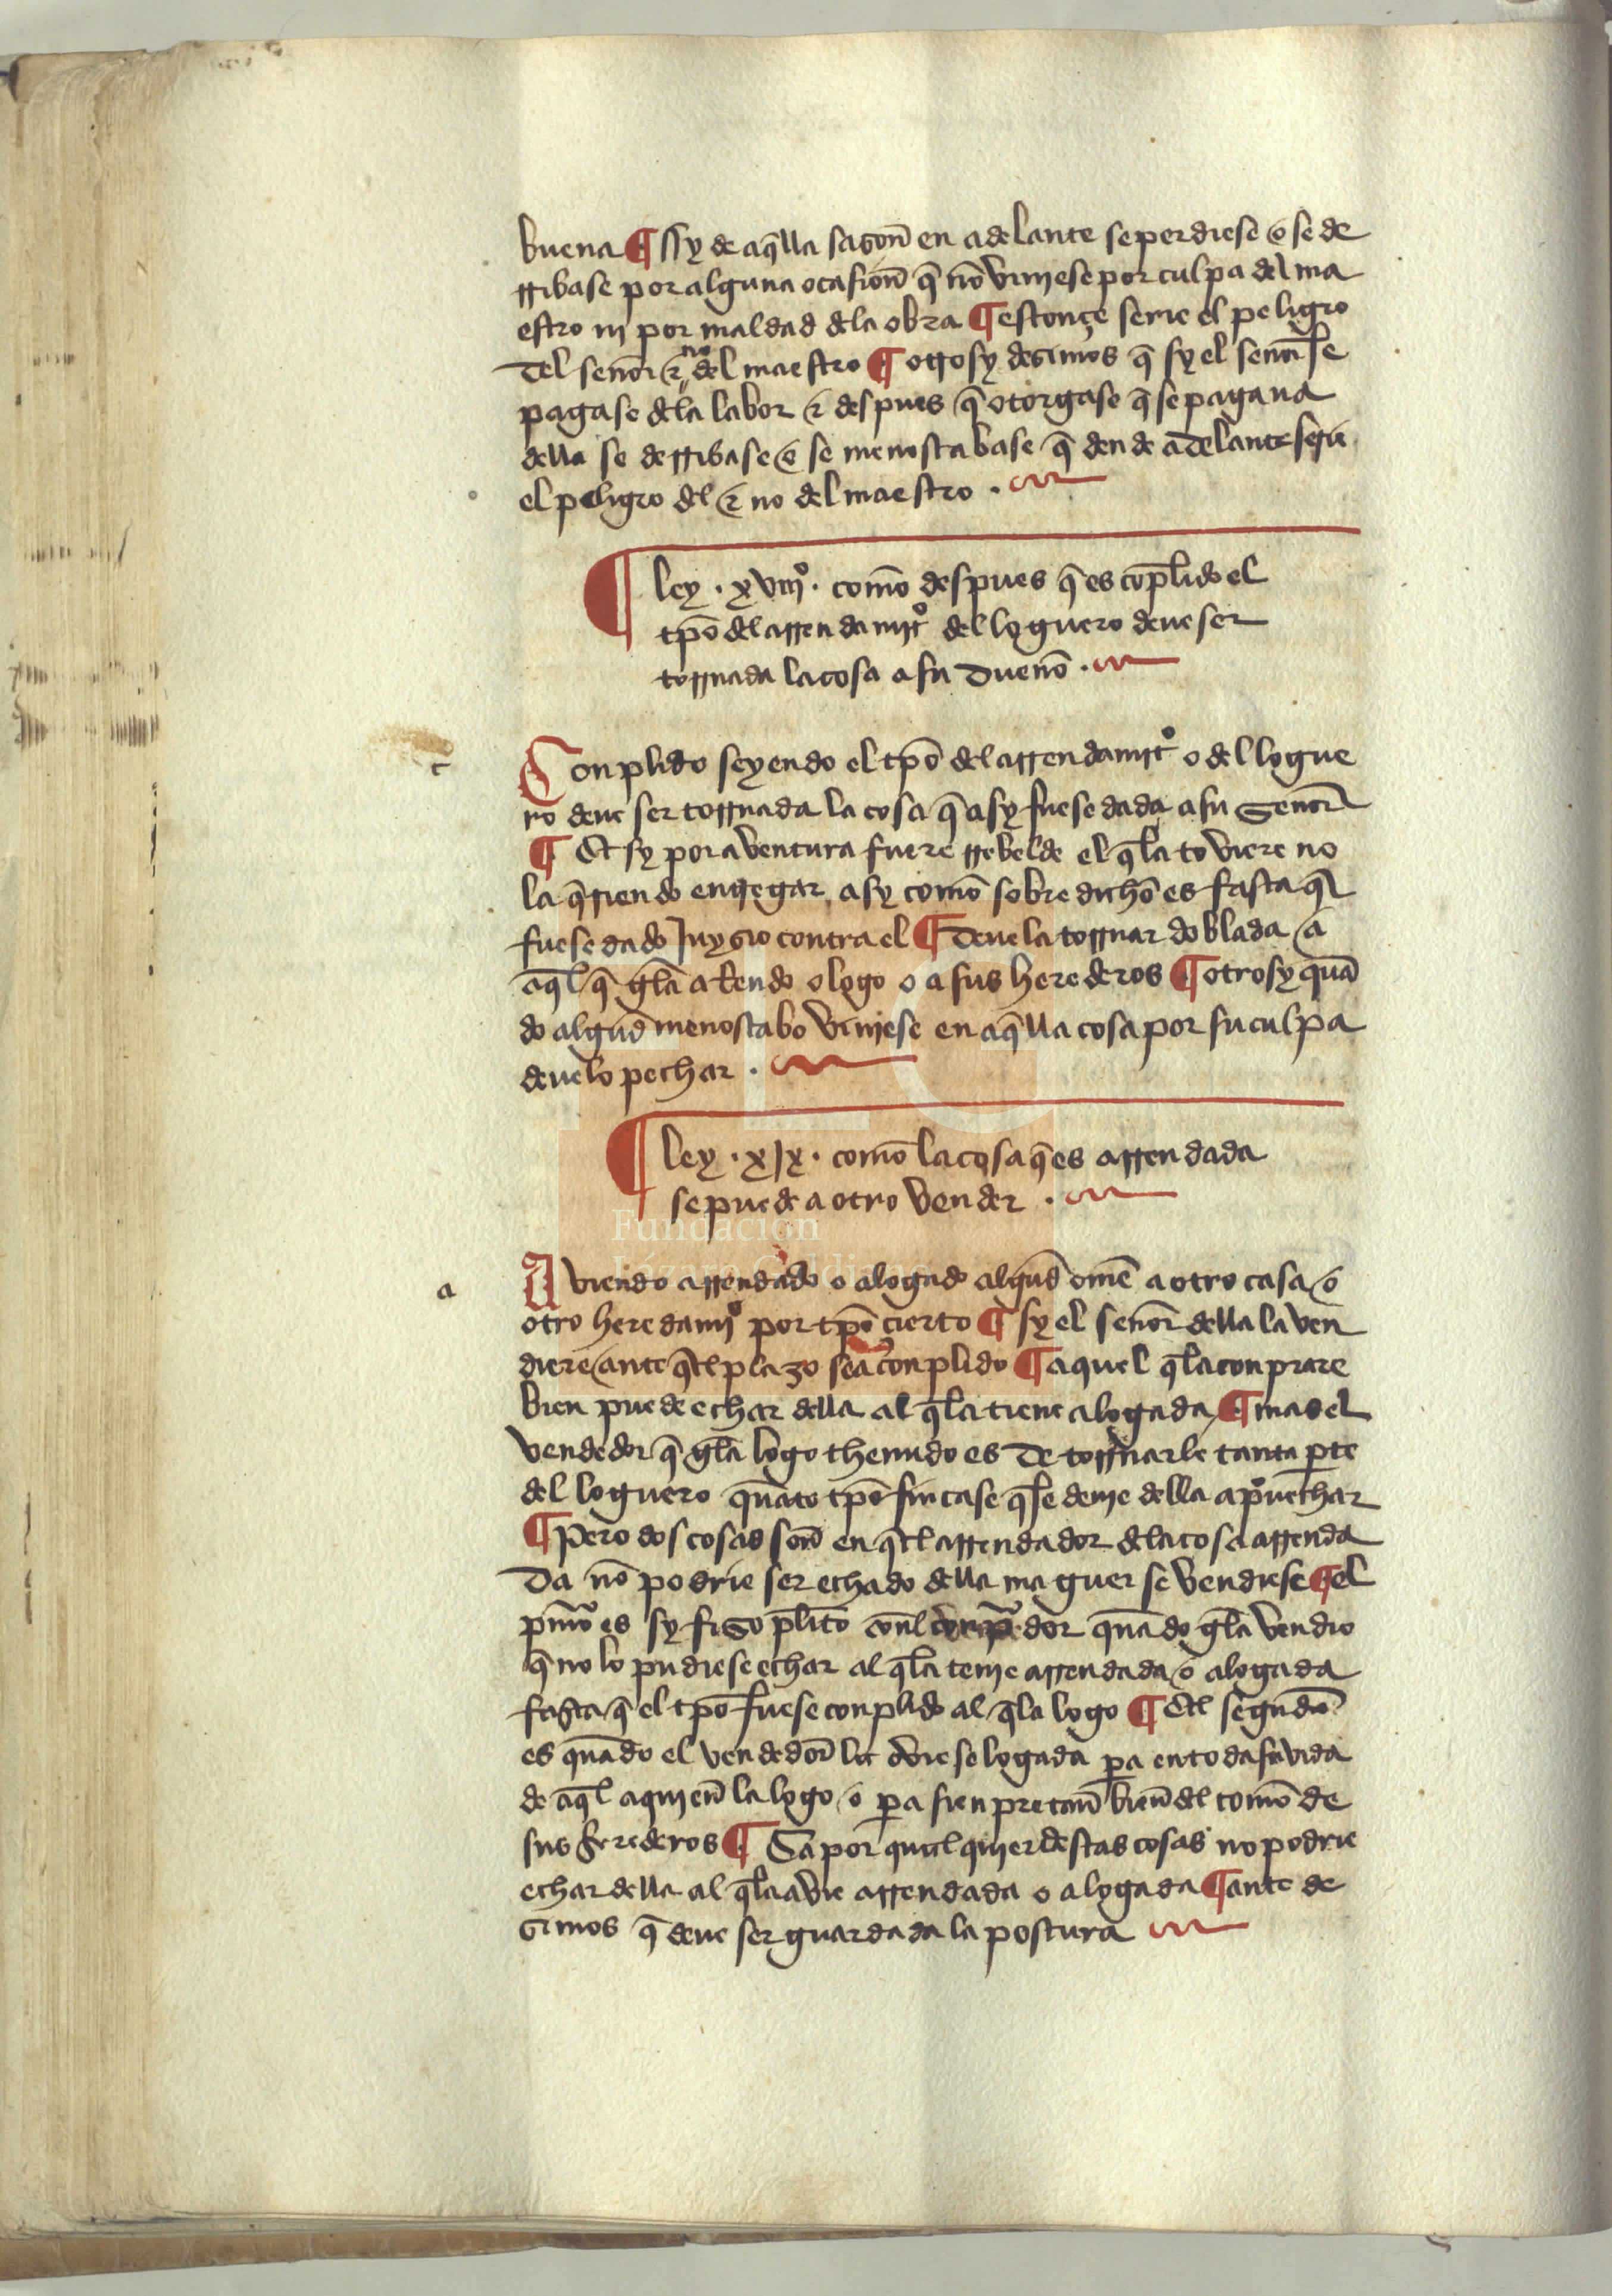 buena ¶ sy de aq̃lla sazon̄ en adelante se perdiese o se de
rribase por alguna ocasion̄ q̃ nõ viniese por culpa del ma
estro ni por maldad dela obra ¶ estonçe serie el peligro
del señor & no del maestro ¶ otrosy dezimos q̃ sy el señor se
pagase dela labor & despues q̃ otorgase q̃ se pagaua
della se derribase o se menoscabase q̃ dende adelante serie
el peligro del & no del maestro .
¶ ley . xviijº . comõ despues q̃ es cõplido el
tp̃o del arrendamjº del loguero deue ser
tornada la cosa a su duenõ .
c
Conplido seyendo el tp̃o del arrendamjº o del logue
ro deue ser tornada la cosa q̃ asy fuese dada a su señor
¶ Et sy por aventura fuere rrebelde el q̃ la toviere no
la q̃riendo entregar asy comõ sobre dichõ es fasta q̃
fuese dado Juyzio contra el ¶ deue la tornar doblada a
aq̃l q̃ gela arrendo o logo o a sus herederos ¶ otrosy quã
do algũd menoscabo viniese en aq̃lla cosa por su culpa
deuelo pechar .
¶ ley . xjx . comõ la cosa q̃ es arrendada
se puede a otro vender .
Fundación
Lázaro Galdiano
a
Auiendo arrendado o alogado algũd omẽ a otro casa o
otro heredamjº por tp̃o çierto ¶ sy el señor della la ven
diere ante q̃ el plazo sea conplido ¶ aquel q̃ la conprare
bien puede echar della al q̃ la tiene alogada ¶ mas el
vendedor q̃ gela logo thenudo es de tornarle tanta p̱te
del loguero quãto tp̃o fincase q̃ se deuie della ap̃uechar
¶ Pero dos cosas sõn en q̃ el arrendador dela cosa arrenda
da nõ podrie ser echado della maguer se vendiese ¶ el
p̃mõ es sy fizo pl̃ito cõnl conp̃dor quãdo gela vendio
q̃ no lo pudiese echar al q̃ la tenie arrendada o alogada
fasta q̃ el tp̃o fuese conplido al q̃ la logo ¶ El segundõ
es quãdo el vendedor la ovie se logada p̱a en toda su vida
de aq̃l a quien̄ la logo o p̱a sienpre tan̄ bien̄ del comõ de
sus herederos ¶ Ca por qual quier destas cosas no podrie
echar della al q̃ la avie arrendada o alogada ¶ ante de
zimos q̃ deue ser guardada la postura